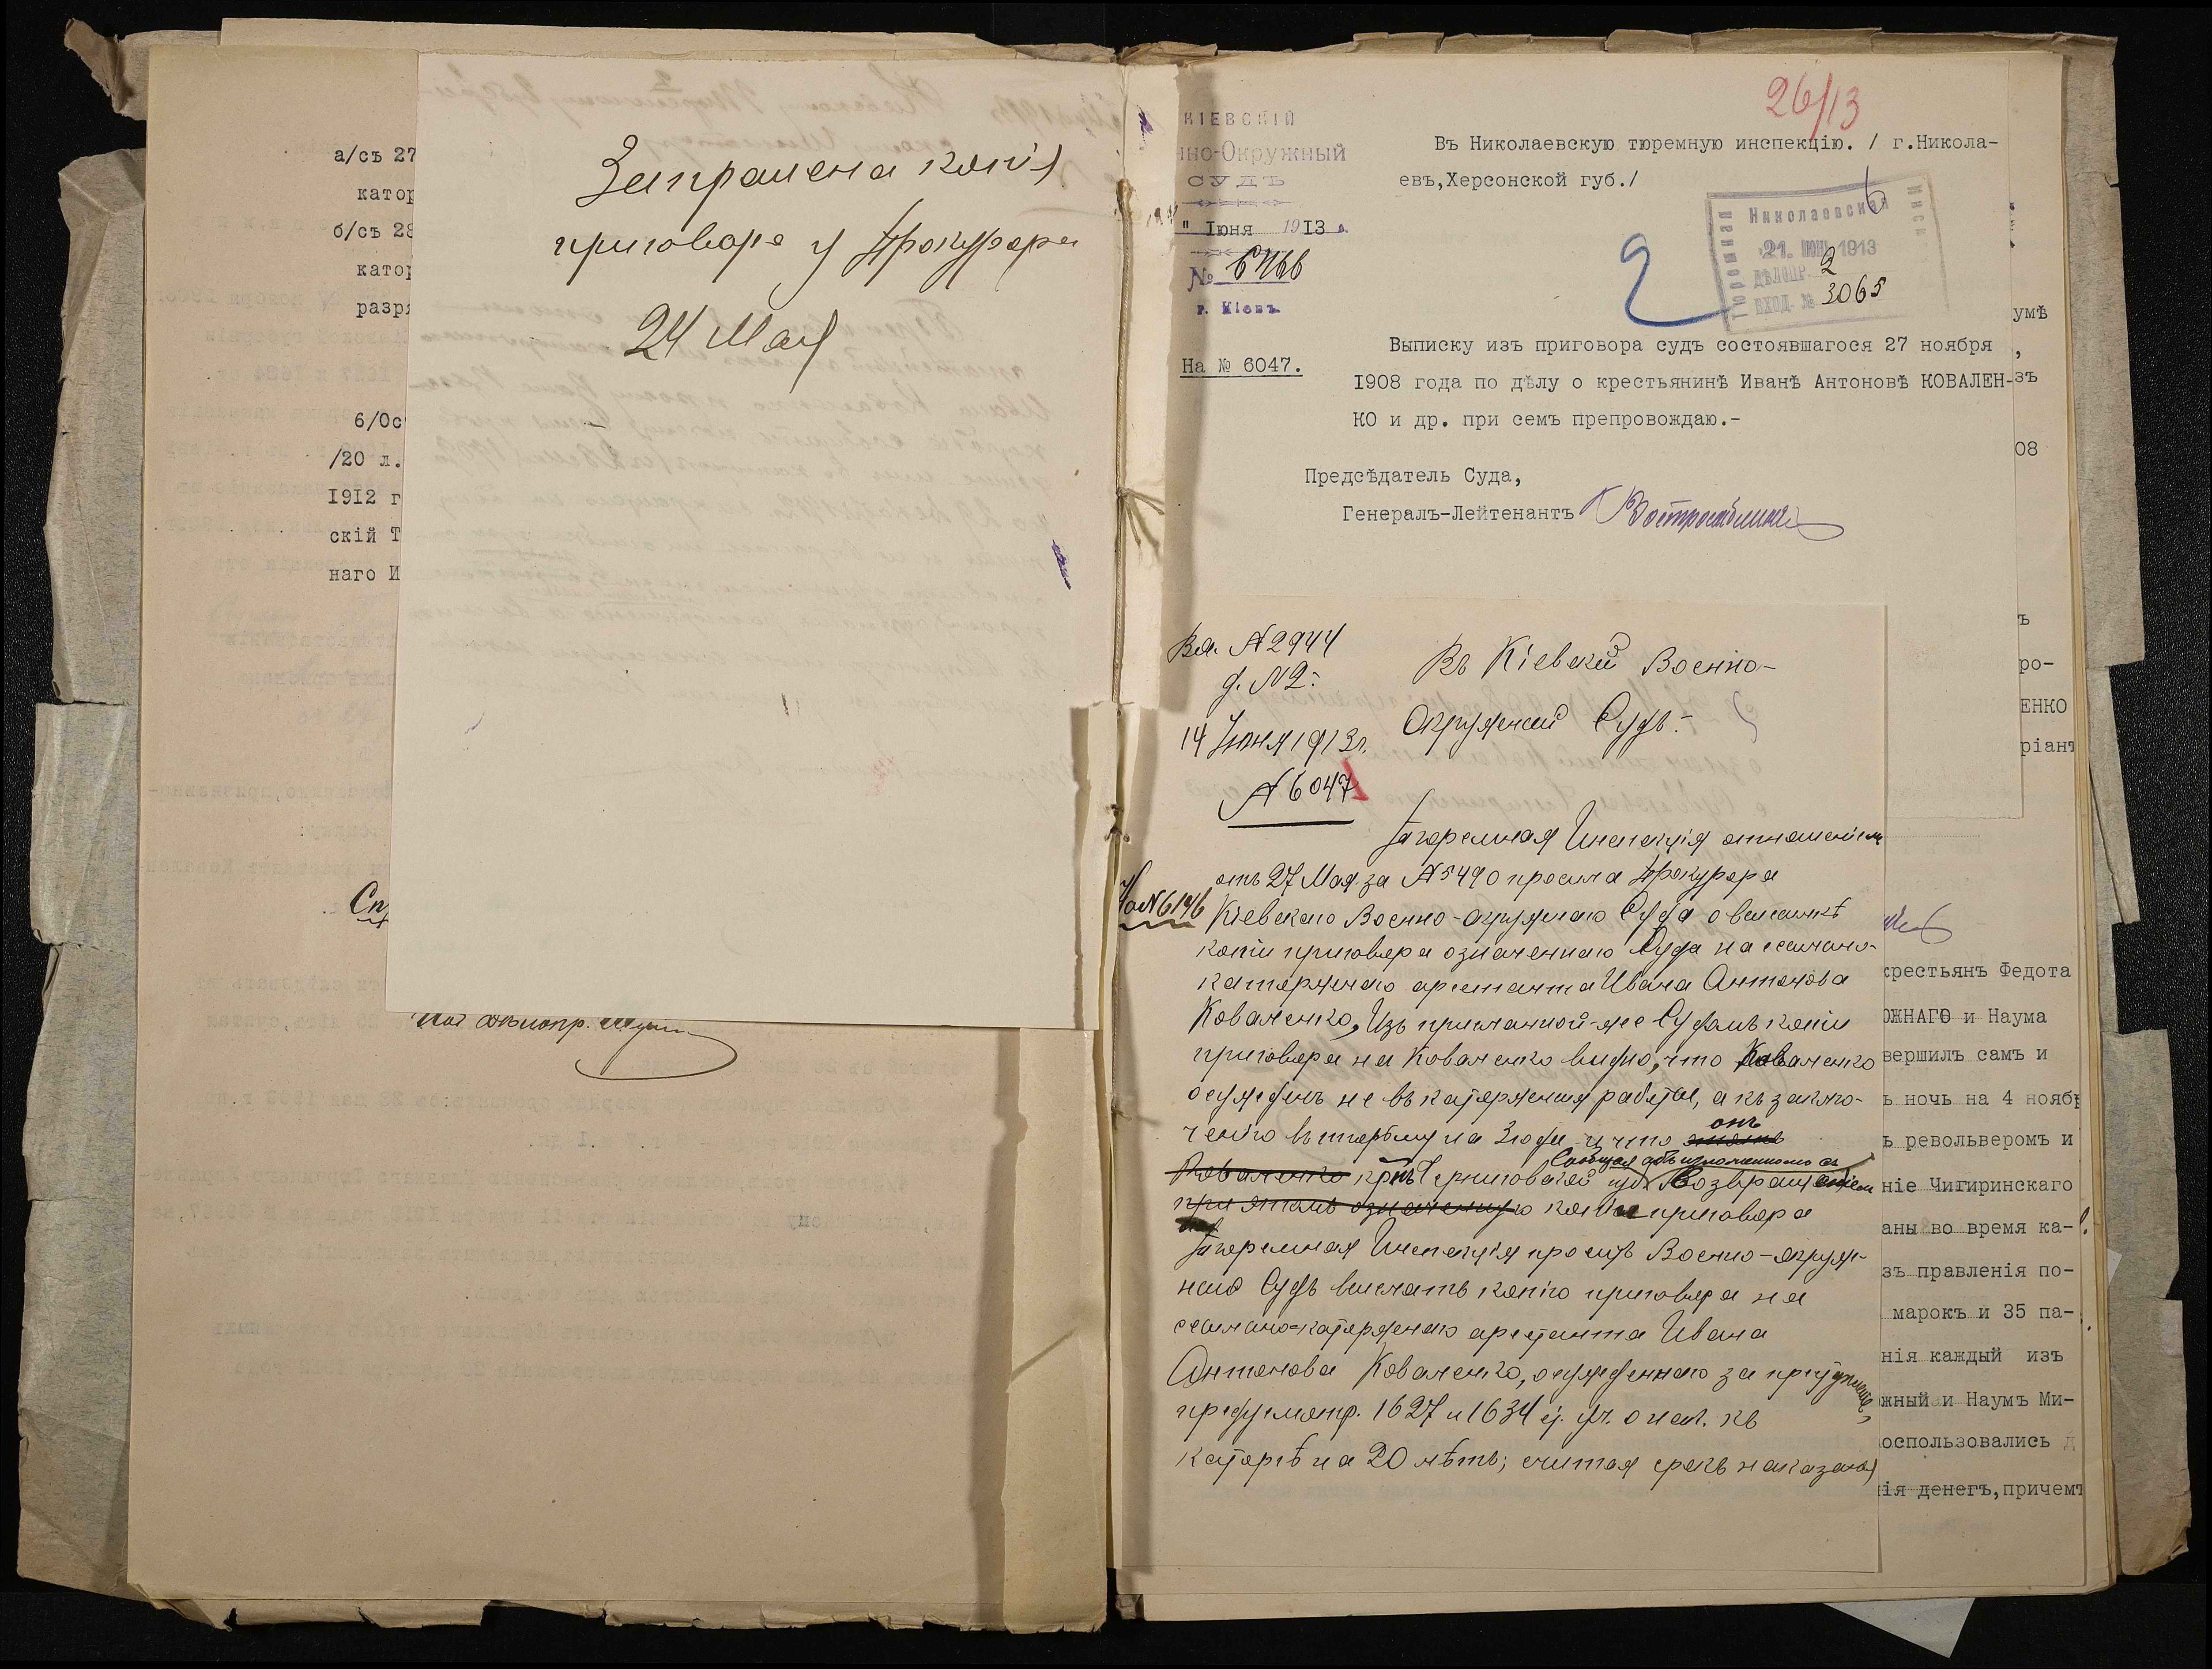 а/съ 27
катор
б/съ 28
катор
разря
6/Ос
/20 л.
1912 г
скій Т
наго И
Сп
Запрошена копія
приговора у Прокурора
24 Мая
26/13
КІЕВСКІЙ
нно-Окружный
СУДЪ
" Іюня 1913 г.
№ 6466
г. Кіевъ.
На № 6047.
Въ Николаевскую тюремную инспекцію. / г.Никола-
евъ,Херсонской губ./
Тюремная
Николаевская
Инсп
21. ІЮН. 1913
ДѢЛОПР. 2
ВХОД. № 3065
2
Выписку изъ приговора судъ состоявшагося 27 ноября
1908 года по дѣлу о крестьянинѣ Иванѣ Антоновѣ КОВАЛЕН-
КО и др. при семъ препровождаю.-
Предсѣдатель Суда,
Генералъ-Лейтенантъ
умѣ
,
зъ
08
ъ
ро-
ЕНКО
ріант
Вх. № 2944
д. № 2.
14 Іюня 1913 г.
№ 6047
На № 6146
Въ Кіевскій Военно-
Окружной Судъ.-
Тюремная Инспекція отношеніемъ
отъ 27 Мая за № 5490 просила Прокурора
Кіевскаго Военно-окружнаго Суда о высылкѣ
копіи приговора означеннаго Суда на ссыльно-
каторжнаго арестанта Ивана Антонова
Коваленко, Изъ присланной-же Судомъ копіи
приговора на Коваленко видно, что Коваленко
осужденъ не въ каторжныя работы, а къ заклю-
ченію въ тюрьму на 3 года и что онъ
Коваленко кр-нъ Черниговской губ. Сообщая объ изложенномъ съ возвращеніемъ
при этомъ означенную копіи приговора
Тюремная Инспекція проситъ Военно-окруж-
ной Судъ выслать копію приговора на
ссыльно-каторжнаго арестанта Ивана
Антонова Коваленко, осужденнаго за преступленія,
предусмотр. 1627 и 1634 ст. ул. о нак. къ
каторгѣ на 20 лѣтъ; считая срокъ наказанія
крестьянъ Федота
ОЖНАГО и Наума
вершилъ самъ и
ъ ночь на 4 ноябр
ъ револьверомъ и
ніе Чигиринскаго
аны во время ка-
зъ правленія по-
марокъ и 35 па-
нія каждый изъ
жный и Наумъ Ми-
оспользовались д
ія денегъ,причемъ